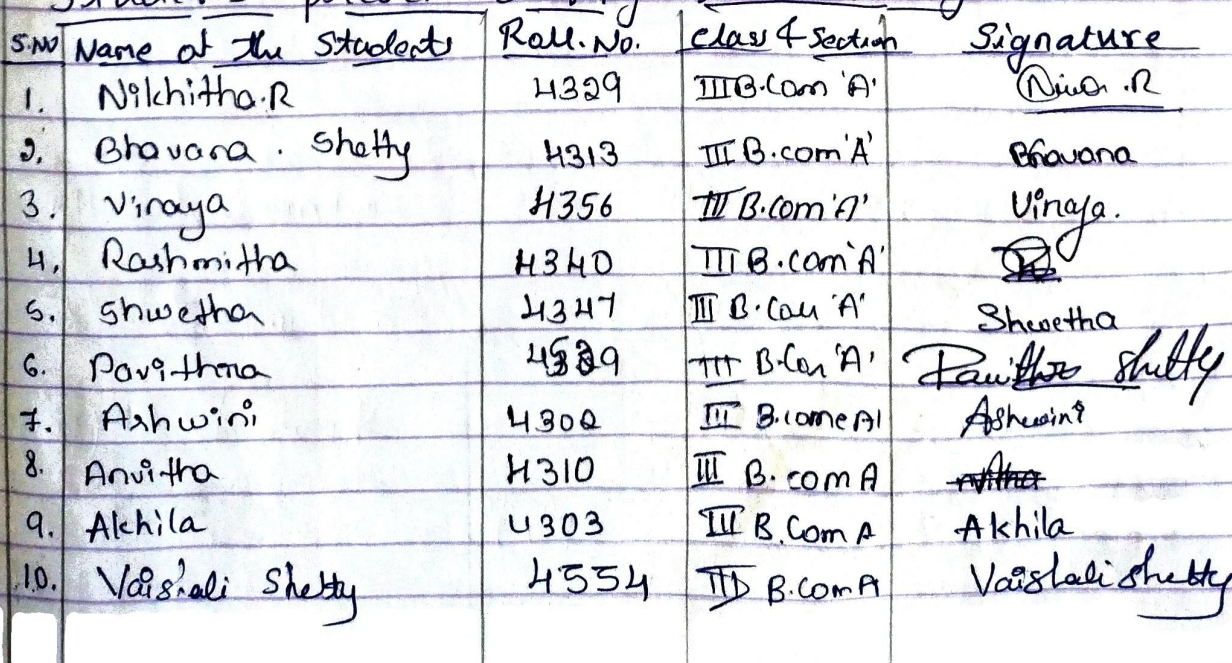 S.NO Name of the Students Roll.No. Class & Section Signature
1. Nikhitha.R 4329 III B.Com 'A'
2. Bhavana . Shetty 4313 III B.com 'A' Bhavana
3. Vinaya 4356 III B.com 'A' Vinaya.
4. Rashmitha 4340 III B.com 'A'
5. Shwetha 4347 III B.Com 'A' Shwetha
6. Pavithra III B.Com 'A' Pavithra Shetty
7. Ashwini 4302 III B.come A Ashwini
8. Anvitha 4310 III B.com A
9. Akhila 4303 III B.Com A Akhila
10. Vaishali Shetty 4554 III B.com A Vaishali Shetty